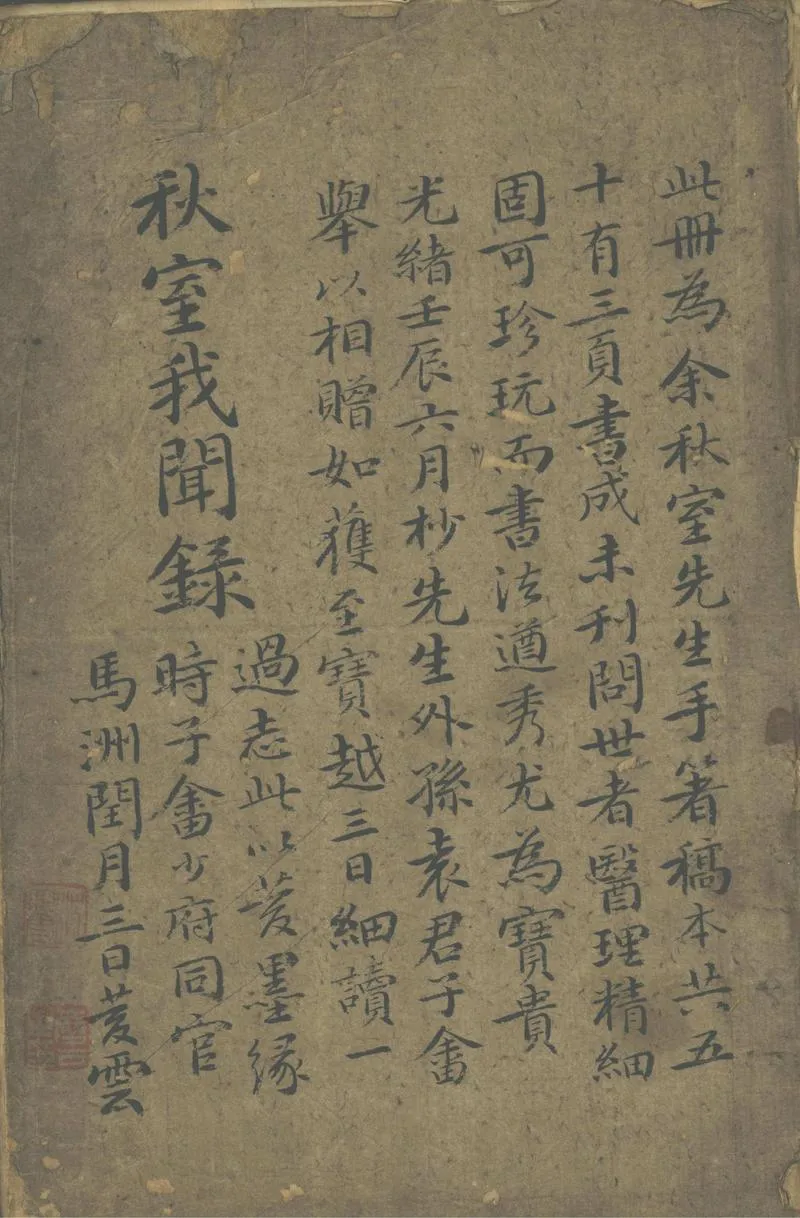 此冊為余秋室先生手著稿本共五
十有三頁書成未刊問世者醫理精細
固可珍玩而書法遒秀尤為寶貴
光緒壬辰六月杪先生外孫袁君子畬
舉以相贈如獲至寶越三日細讀一
過志此以爰墨緣
秋室我聞錄
時子畬少府同官
馬洲閏月三日爰雲